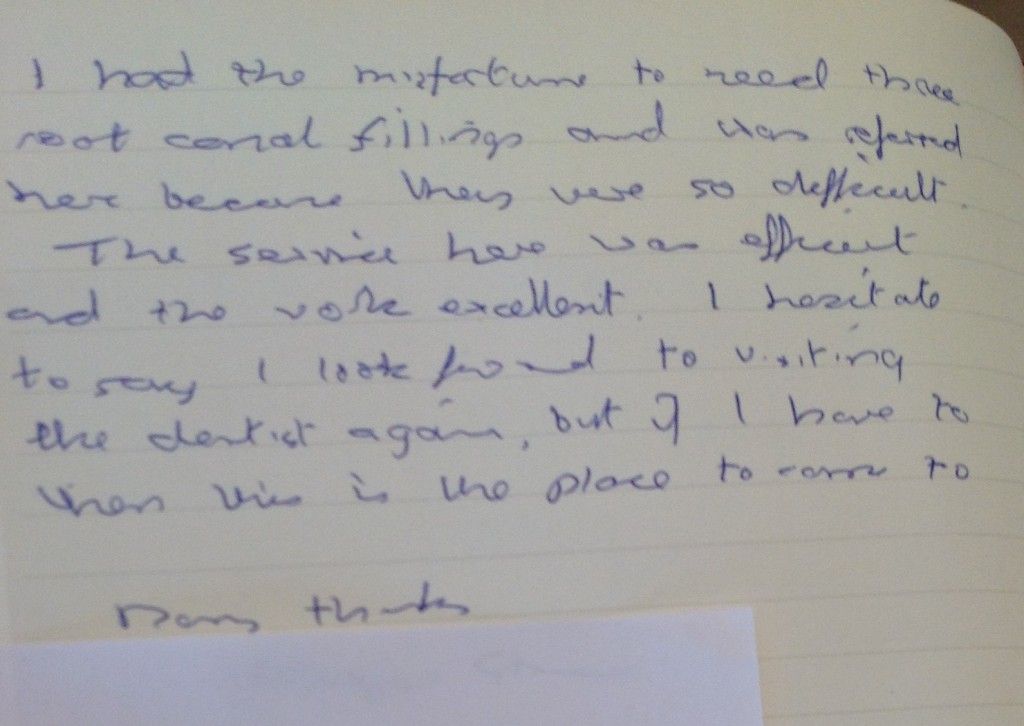 I had the misfortune to need three
root canal fillings and was referred
here because they were so difficult.
The service here was efficient
and the work excellent. I hesitate
to say I look forward to visiting
the dentist again, but if I have to
then this is the place to come to
Many thanks